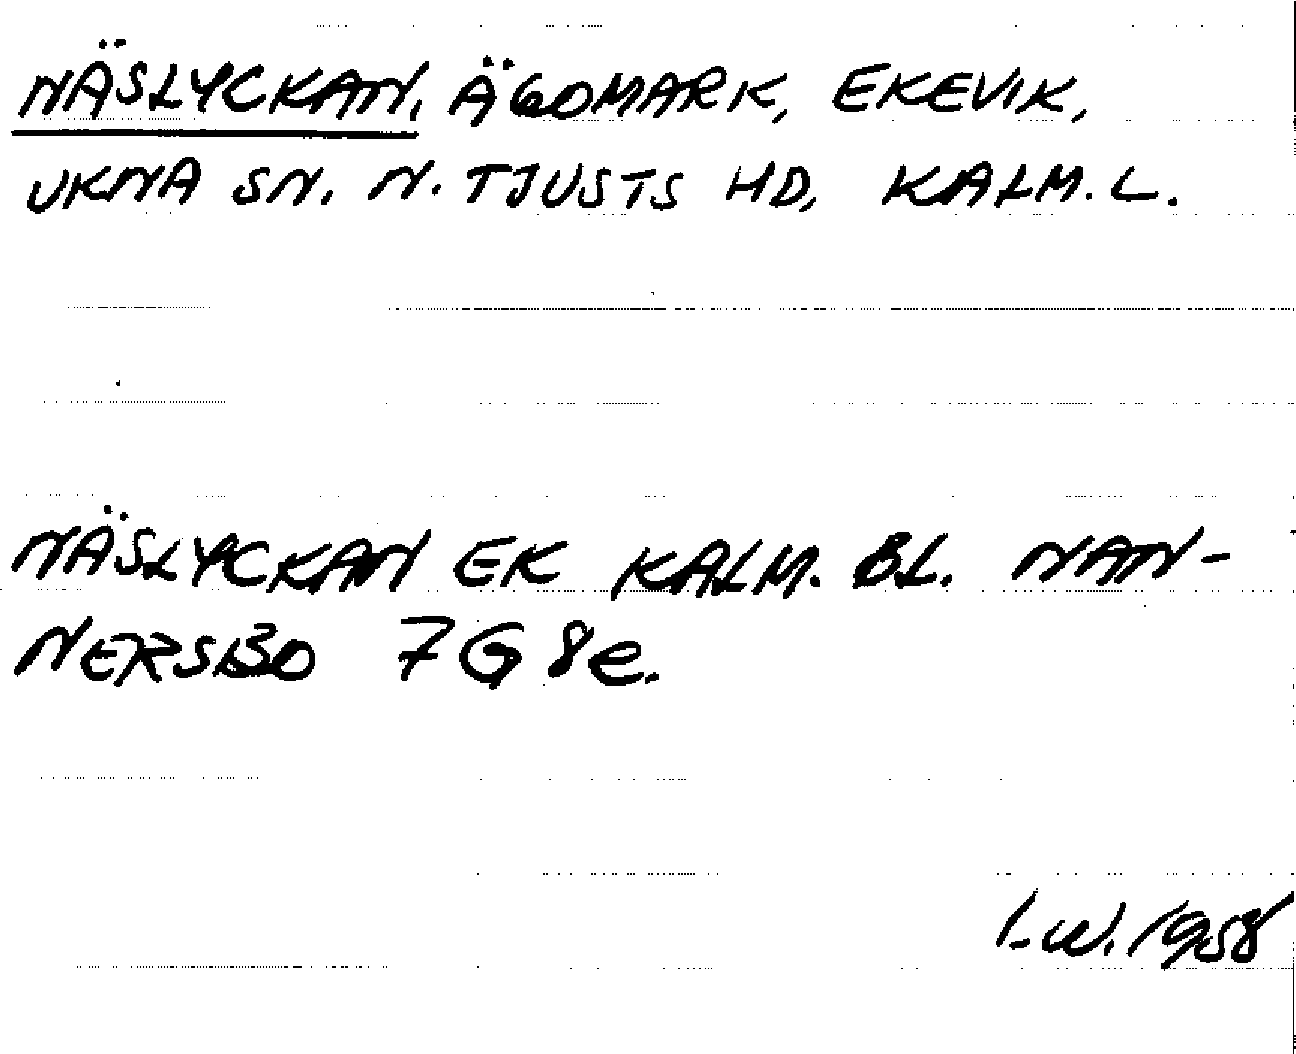 NÄSLYCKAN, ÄGOMARK, EKEVIK,
UKNA SN. N. TJUSTS HD, KALM. L.
NÄSLYCKAN EK KALM. BL. NAN-
NERSBO 7G 8e.
I.W. 1958